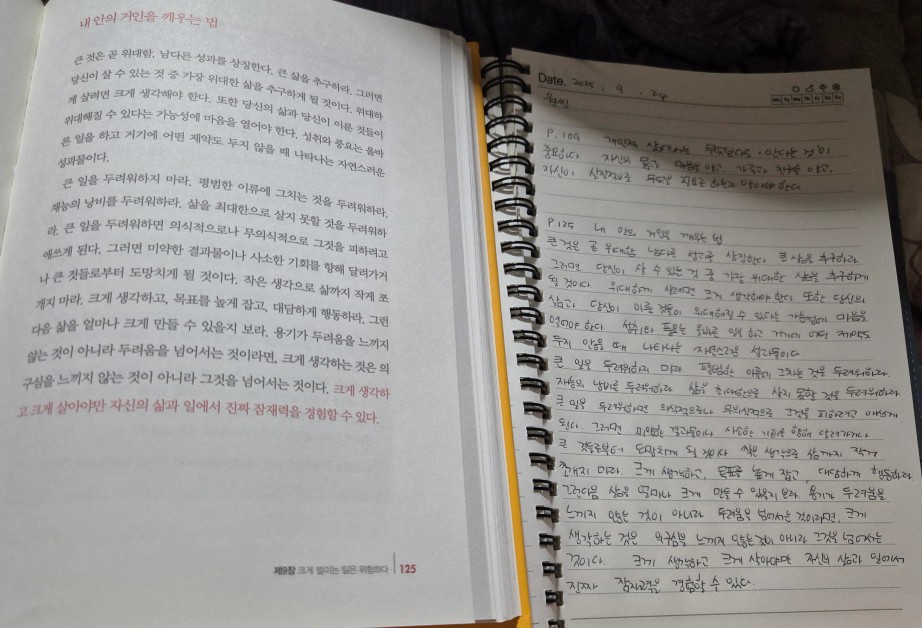 내 안의 거인을 깨우는 법
큰 것은 곧 위대함, 남다른 성과를 상징한다. 큰 삶을 추구하라. 그러면
당신이 살 수 있는 것 중 가장 위대한 삶을 추구하게 될 것이다. 위대하
게 살려면 크게 생각해야 한다. 또한 당신의 삶과 당신이 이룬 것들이
위대해질 수 있다는 가능성에 마음을 열어야 한다. 성취와 풍요는 올바
른 일을 하고 거기에 어떤 제약도 두지 않을 때 나타나는 자연스러운
성과물이다.
큰 일을 두려워하지 마라. 평범한 이류에 그치는 것을 두려워하라.
재능의 낭비를 두려워하라. 삶을 최대한으로 살지 못할 것을 두려워하
라. 큰 일을 두려워하면 의식적으로나 무의식적으로 그것을 피하려고
애쓰게 된다. 그러면 미약한 결과물이나 사소한 기회를 향해 달려가거
나 큰 것들로부터 도망치게 될 것이다. 작은 생각으로 삶까지 작게 쪼
개지 마라. 크게 생각하고, 목표를 높게 잡고, 대담하게 행동하라. 그런
다음 삶을 얼마나 크게 만들 수 있을지 보라. 용기가 두려움을 느끼지
않는 것이 아니라 두려움을 넘어서는 것이라면, 크게 생각하는 것은 의
구심을 느끼지 않는 것이 아니라 그것을 넘어서는 것이다. 크게 생각하
고 크게 살아야만 자신의 삶과 일에서 진짜 잠재력을 경험할 수 있다.
제9장 크게 벌이는 일은 위험하다 125
Date. 2025 . 9 .
Mo Tu We Th Fr Sa Su
원씽
P.109 개인적 삶에서는 안다는 것이
중요하다 자신의 몸과 마음을 알고, 가족과 친구를 알고,
자신이 무엇을 필요로 하는지 알아야 한다
P.125 내 안의 거인을 깨우는 법
큰 것은 곧 위대함 남다른 성과를 상징한다 큰 삶을 추구하라
그러면 당신이 살 수 있는 것 중 가장 위대한 삶을 추구하게
될 것이다 위대하게 살려면 크게 생각해야 한다. 또한 당신의
삶과 당신이 이룬 것들이 위대해질 수 있다는 가능성에 마음을
열어야 한다 성취와 풍요는 올바른 일을 하고 거기에 어떤 제약도
두지 않을 때 나타나는 자연스러운 성과물이다
큰 일을 두려워하지 마라 평범한 이류에 그치는 것을 두려워하라.
재능의 낭비를 두려워하라 삶을 최대한으로 살지 못할 것을 두려워하라
큰 일을 두려워하면 의식적으로나 무의식적으로 그것을 피하려고 애쓰게
된다 그러면 미약한 결과물이나 사소한 기회를 향해 달려가거나
큰 것들로부터 도망치게 될 것이다 작은 생각으로 삶까지 작게
쪼개지 마라. 크게 생각하고, 목표를 높게 잡고, 대담하게 행동하라
그런다음 삶을 얼마나 크게 만들 수 있을지 보라 용기가 두려움을
느끼지 않는 것이 아니라 두려움을 넘어서는 것이라면, 크게
생각하는 것은 의구심을 느끼지 않는 것이 아니라 그것을 넘어서는
것이다. 크게 생각하고 크게 살아야만 자신의 삶과 일에서
진짜 잠재력을 경험할 수 있다.